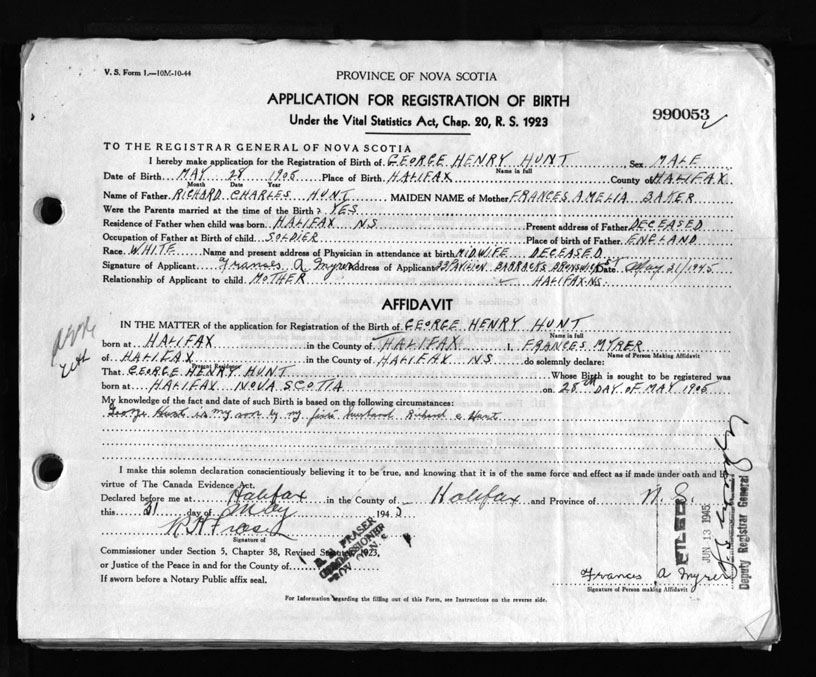 V. S. Form 1.—10M-10-44
PROVINCE OF NOVA SCOTIA
APPLICATION FOR REGISTRATION OF BIRTH
Under the Vital Statistics Act, Chap. 20, R. S. 1923
990053
TO THE REGISTRAR GENERAL OF NOVA SCOTIA
I hereby make application for the Registration of Birth of GEORGE HENRY HUNT Sex MALE
Name in full
Date of Birth MAY 28 1905 Place of Birth HALIFAX County of HALIFAX
Month Date Year
Name of Father RICHARD CHARLES HUNT MAIDEN NAME of Mother FRANCES AMELIA
Were the Parents married at the time of the Birth? YES
Residence of Father when child was born HALIFAX NS Present address of Father DECEASED
Occupation of Father at Birth of child SOLDIER Place of birth of Father ENGLAND
Race WHITE Name and present address of Physician in attendance at birth MIDWIFE DECEASED
Signature of Applicant Frances A Myrer Address of Applicant BARRACKS BRUNSWICK ST Date May 31/1945
Relationship of Applicant to child MOTHER HALIFAX NS
AFFIDAVIT
IN THE MATTER of the application for Registration of the Birth of GEORGE HENRY HUNT
Name in full
born at HALIFAX in the County of HALIFAX I, FRANCES MYRER
Name of Person Making Affidavit
of HALIFAX in the County of HALIFAX NS do solemnly declare:
Present Residence
That GEORGE HENRY HUNT Whose Birth is sought to be registered was
born at HALIFAX NOVA SCOTIA on 28TH DAY OF MAY 1905
My knowledge of the fact and date of such Birth is based on the following circumstances:
George Hunt is my son by my first husband Richard C Hunt
I make this solemn declaration conscientiously believing it to be true, and knowing that it is of the same force and effect as if made under oath and by
virtue of The Canada Evidence Act.
Declared before me at Halifax in the County of Halifax and Province of N. S.
this 31 day of May 1945
R H Fraser
Signature of
Commissioner under Section 5, Chapter 38, Revised Statutes, 1923,
or Justice of the Peace in and for the County of
If sworn before a Notary Public affix seal.
FRASER
COMMISSIONER
FILED
JUN 13 1945
Deputy Registrar General
Frances A Myrer
Signature of Person making Affidavit
For Information regarding the filling out of this Form, see Instructions on the reverse side.